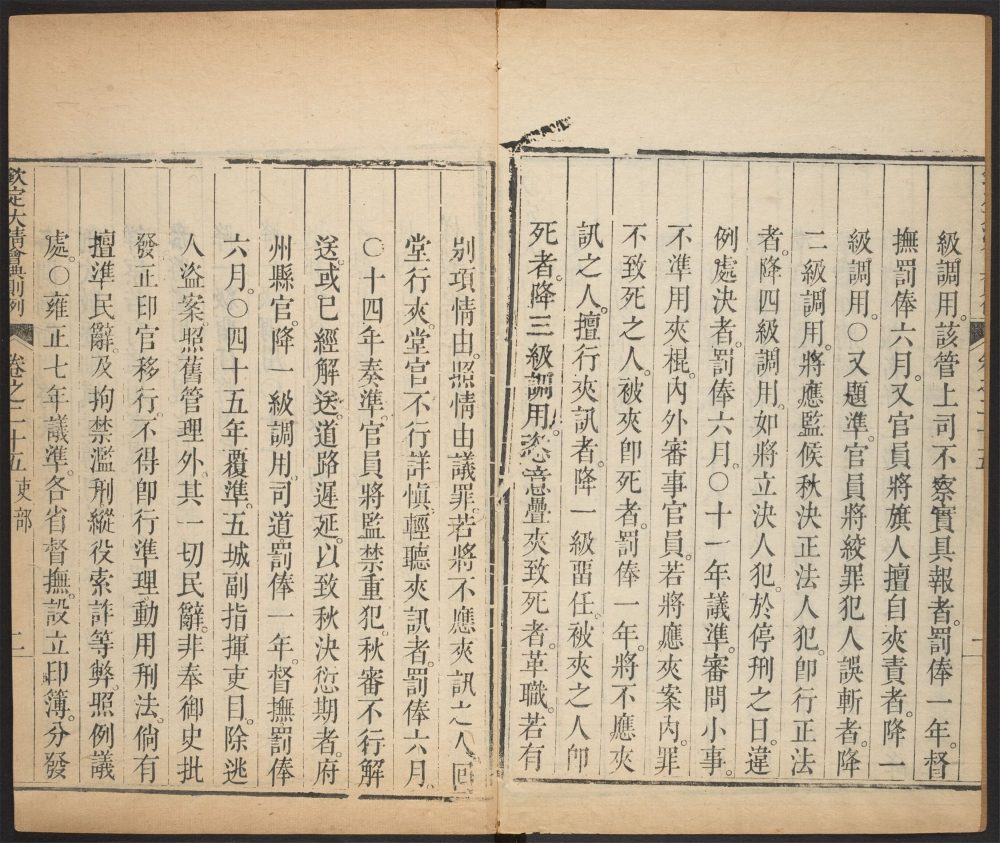 級調用。該管上司不察實具報者。罰俸一年。督
撫罰俸六月。又官員將旗人擅自夾責者。降一
級調用。○又題準。官員將絞罪犯人誤斬者。降
二級調用。將應監候秋決正法人犯。卽行正法
者。降四級調用。如將立決人犯。於停刑之日。違
例處決者。罰俸六月。○十一年議準。審問小事。
不準用夾棍。內外審事官員。若將應夾案內。罪
不致死之人。被夾卽死者。罰俸一年。將不應夾
訊之人。擅行夾訊者。降一級畱任。被夾之人卽
死者。降三級調用。恣意疊夾致死者。革職。若有
別項情由。照情由議罪。若將不應夾訊之人。回
堂行夾。堂官不行詳慎。輕聽夾訊者。罰俸六月。
○十四年奏準。官員將監禁重犯。秋審不行解
送。或已經解送。道路遲延。以致秋決愆期者。府
州縣官。降一級調用。司道。罰俸一年。督撫罰俸
六月。○四十五年覆準。五城副指揮吏目。除逃
人盜案照舊管理外。其一切民辭。非奉御史批
發正印官移行。不得卽行準理動用刑法。倘有
擅準民辭。及拘禁濫刑縱役索詐等弊。照例議
處。○雍正七年議準。各省督撫。設立印簿。分發
欽定大清會典則例 卷之二十五 吏部 二